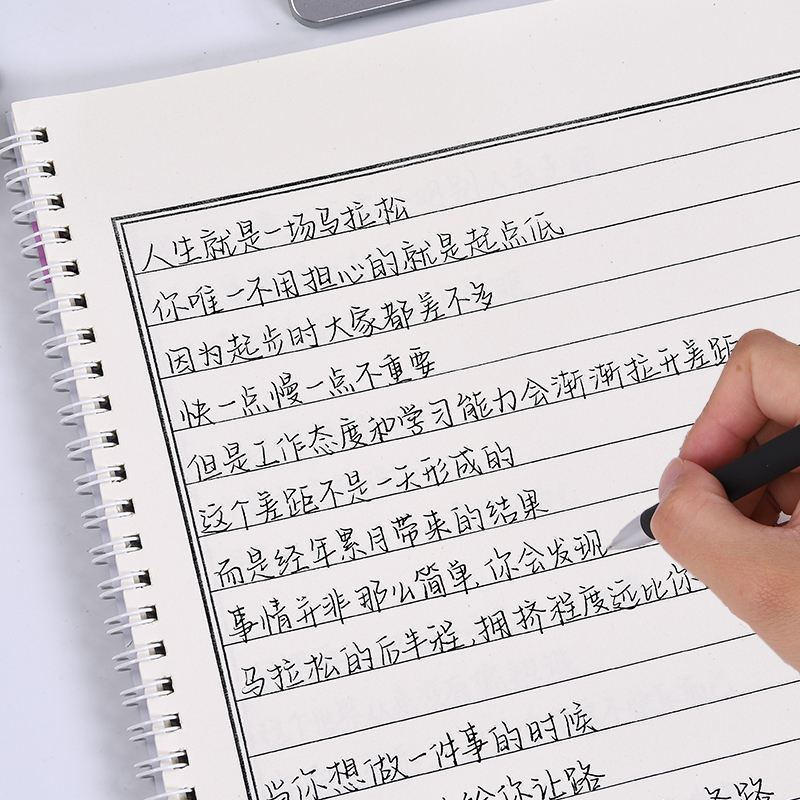 人生就是一场马拉松
你唯一不用担心的就是起点低
因为起步时大家都差不多
快一点慢一点不重要
但是工作态度和学习能力会渐渐拉开差距
这个差距不是一天形成的
而是经年累月带来的结果
事情并非那么简单,你会发现
马拉松的后半程,拥挤程度远比你
当你想做一件事的时候
给你让路